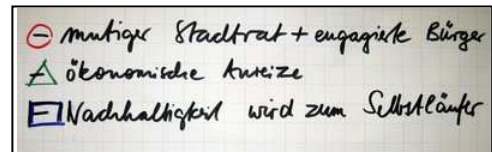 mutiger Stadtrat + engagierte Bürger
ökonomische Anreize
Nachhaltigkeit wird zum Selbstläufer